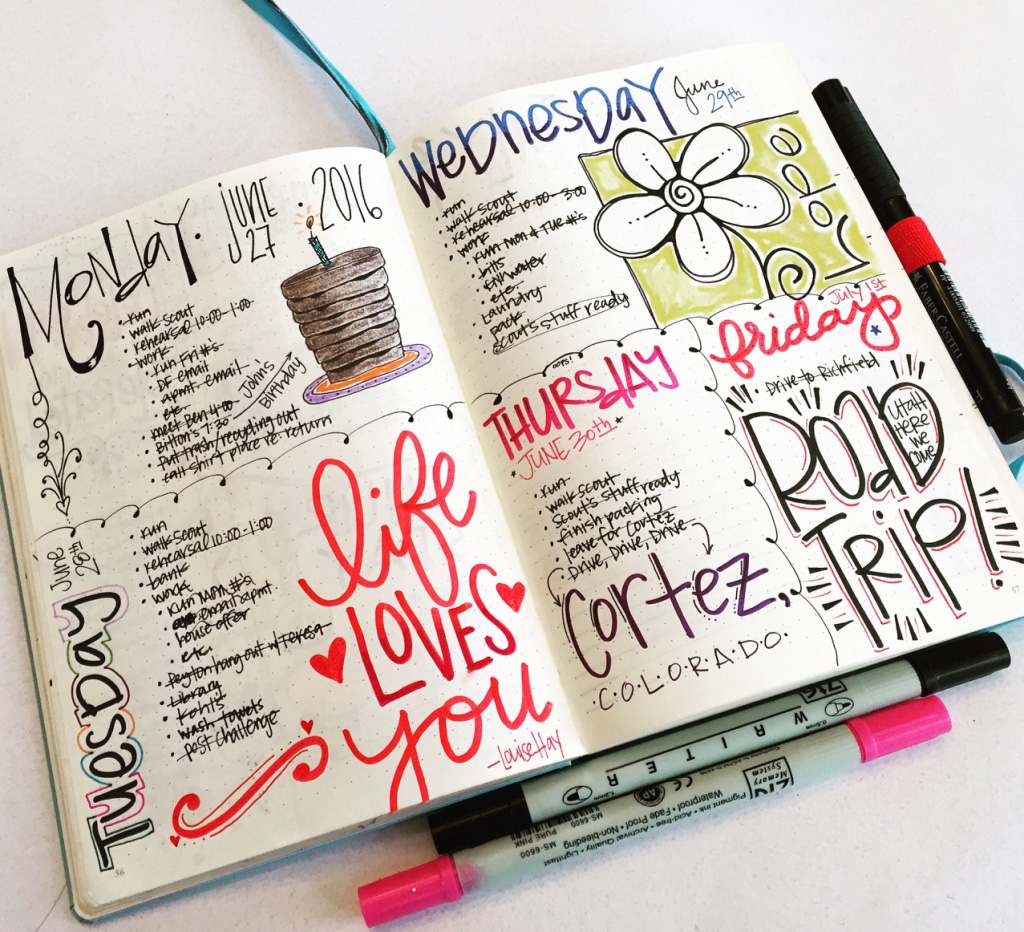 Monday. June 27 . 2016
• run
• walk scout
• rehearsal 10:00-1:00
• work
• run Fri #'s
• DF email
• apmt. email
• etc.
• meet Ben 4:00
• Bitton's 7:30
• put trash/recycling out
• call shirt place re: return
John's
Birthday
Tuesday June 28th
• run
• walk scout
• rehearsal 10:00-1:00
• bank
• work
• run mon #'s
• email apmt.
• house offer
• etc.
• Peyton hang out w/Teresa
• Library
• Kohl's
• wash towels
• post challenge
life
LOVES
you
-Louise Hay
36
Wednesday June 29th
• run
• walk scout
• rehearsal 10:00-3:00
• work
• run mon & Tue #'s
• bills
• etc.
• laundry
• pack
• scout's stuff ready
oops!
THURSDAY
JUNE 30th
• run
• walk scout
• scout's stuff ready
• finish packing
• leave for Cortez
• Drive, Drive, Drive
Cortez,
C·O·L·O·R·A·D·O·
July 1st
friday
• Drive to Richfield
ROAD
UTAH
Here
We
Come
TRIP!
37
FABER CASTELL
ZIG
WRITER
0.5mm
1.2mm
ZIG Memory System
CE
AP
Pigment ink • Acid-free • Archival Quality • Lightfast
Waterproof • Fade Proof • Non-bleeding
MS-6600
PURE PINK
MS-6600